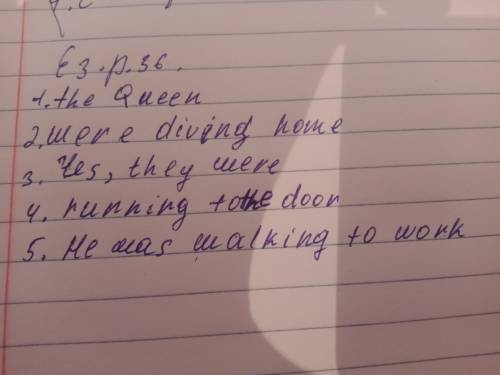 Ez.p.36.
1. the Queen
2. were diving home
3. Yes, they were
4. running to the door
5. He was walking to work